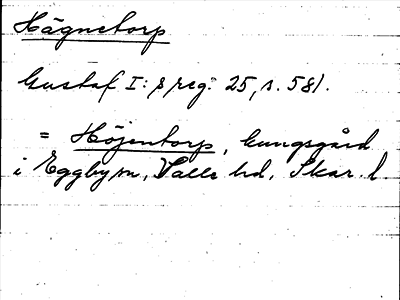 Hägnetorp
Gustaf I:s reg: 25, s. 581.
= Höjentorp, kungsgård
i Eggby sn, Valle hd, Skar. l.